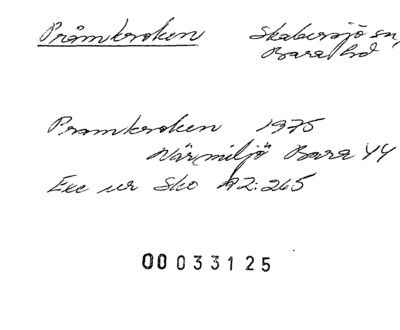 Pråmkroken Skabersjö sn,
Bara hd
Pramkroken 1975
Närmiljö Bara 44
Exc ur Sko A2:265
00033125